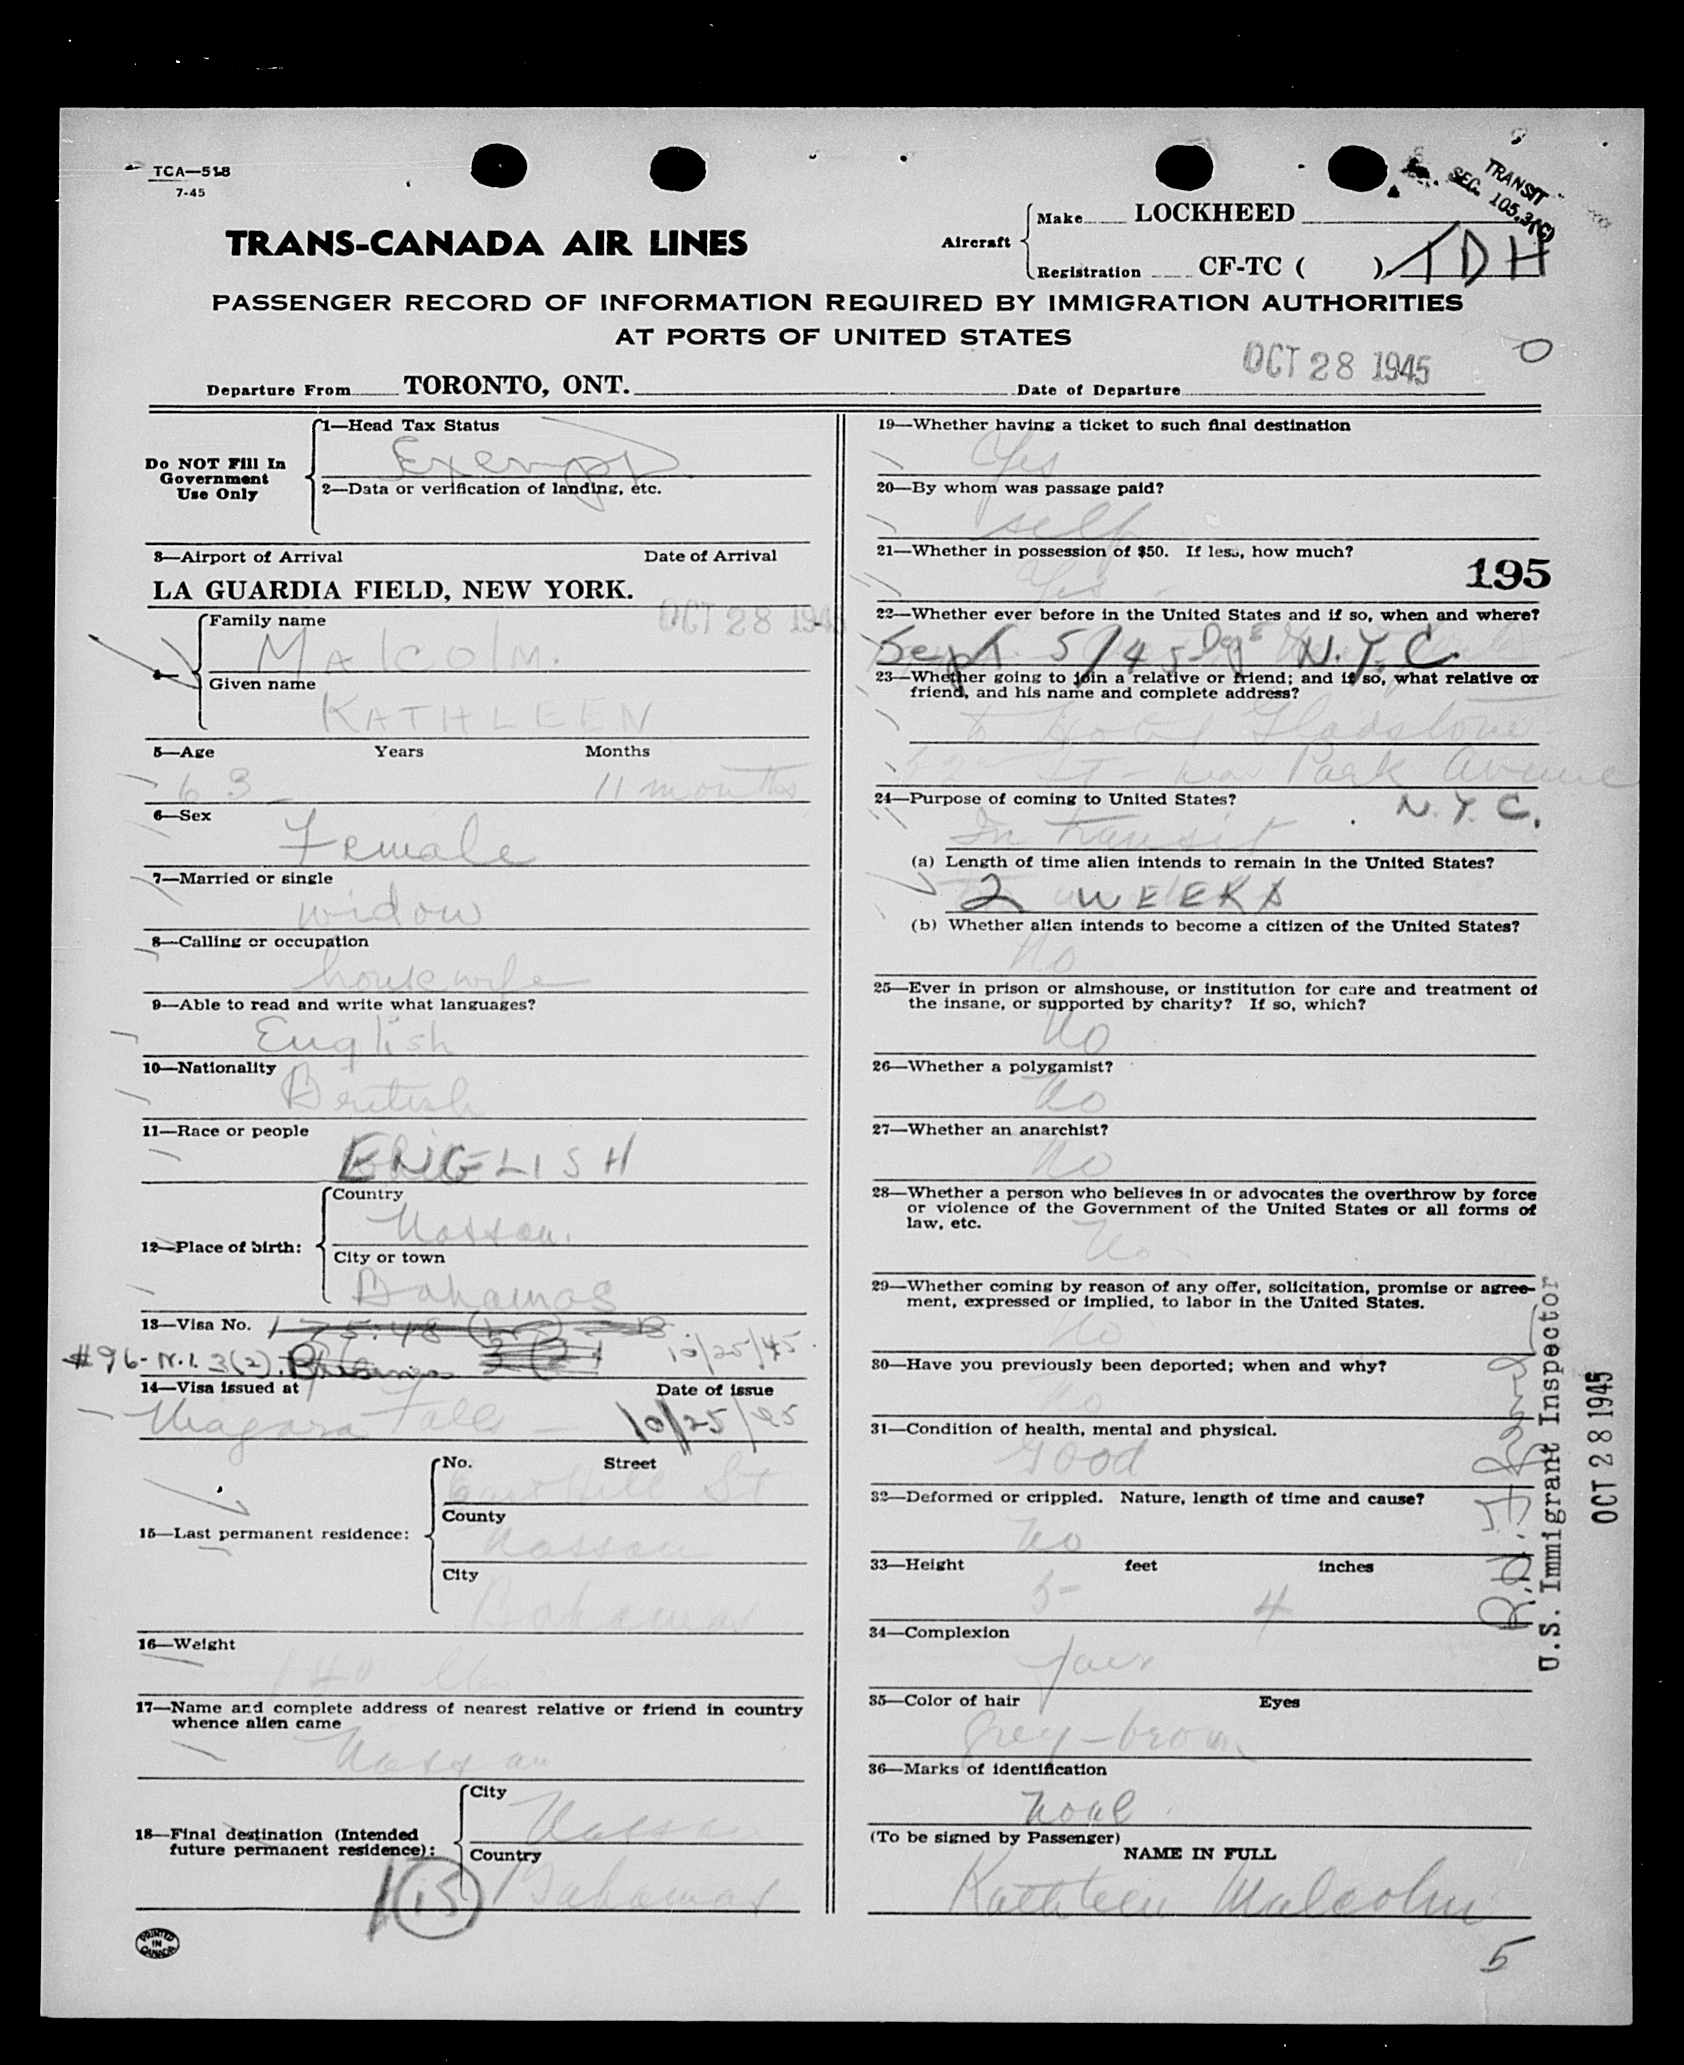 TCA—518
7-45
TRANSIT
SEC. 105.3(C)
TRANS-CANADA AIR LINES
Aircraft
Make LOCKHEED
Registration CF-TC ( ) TDH
PASSENGER RECORD OF INFORMATION REQUIRED BY IMMIGRATION AUTHORITIES
AT PORTS OF UNITED STATES
OCT 28 1945
Departure From TORONTO, ONT. Date of Departure
Do NOT Fill In
Government
Use Only
1—Head Tax Status
Exempt
2—Data or verification of landing, etc.
3—Airport of Arrival Date of Arrival
LA GUARDIA FIELD, NEW YORK.
OCT 28 1945
Family name
MALCOLM.
Given name
KATHLEEN
5—Age Years Months
63 11 months
6—Sex
Female
7—Married or single
widow
8—Calling or occupation
housewife
9—Able to read and write what languages?
English
10—Nationality
British
11—Race or people
ENGLISH
12—Place of birth:
Country
Nassau.
City or town
Bahamas
13—Visa No.
10/25/45.
#96-N.I. 3(2).
14—Visa issued at Date of issue
Niagara Falls — 10/25/45
15—Last permanent residence:
No. Street
St
County
Nassau
City
Bahamas
16—Weight
140 lbs
17—Name and complete address of nearest relative or friend in country
whence alien came
Nassau
18—Final destination (Intended
future permanent residence):
City
Nassau
Country
Bahamas
15
PRINTED
IN
CANADA
19—Whether having a ticket to such final destination
Yes
20—By whom was passage paid?
self
21—Whether in possession of $50. If less, how much?
Yes
195
22—Whether ever before in the United States and if so, when and where?
Sept 5/45 N.Y.C.
23—Whether going to join a relative or friend; and if so, what relative or
friend, and his name and complete address?
to Hotel Gladstone
52nd St - near Park Avenue
N.Y.C.
24—Purpose of coming to United States?
In transit
(a) Length of time alien intends to remain in the United States?
2 WEEKS
(b) Whether alien intends to become a citizen of the United States?
No
25—Ever in prison or almshouse, or institution for care and treatment of
the insane, or supported by charity? If so, which?
No
26—Whether a polygamist?
No
27—Whether an anarchist?
No
28—Whether a person who believes in or advocates the overthrow by force
or violence of the Government of the United States or all forms of
law, etc.
No
29—Whether coming by reason of any offer, solicitation, promise or agree-
ment, expressed or implied, to labor in the United States.
No
30—Have you previously been deported; when and why?
No
31—Condition of health, mental and physical.
Good
32—Deformed or crippled. Nature, length of time and cause?
No
33—Height feet inches
5 4
34—Complexion
fair
35—Color of hair Eyes
grey-brown
36—Marks of identification
none
(To be signed by Passenger)
NAME IN FULL
Kathleen Malcolm
5
U.S. Immigrant Inspector
OCT 28 1945